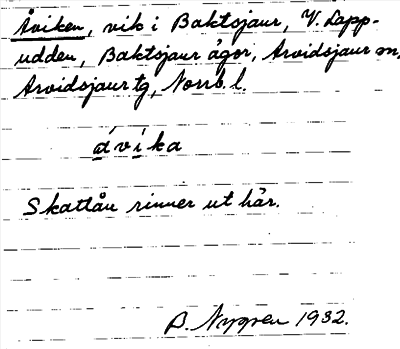 Åviken, vik i Baktsjaur, V. Lapp-
udden, Baktsjaur ägor, Arvidsjaur sn,
Arvidsjaur tg, Norrb. l.
á v i k a
Skattån rinner ut här.
B. Nygren 1932.